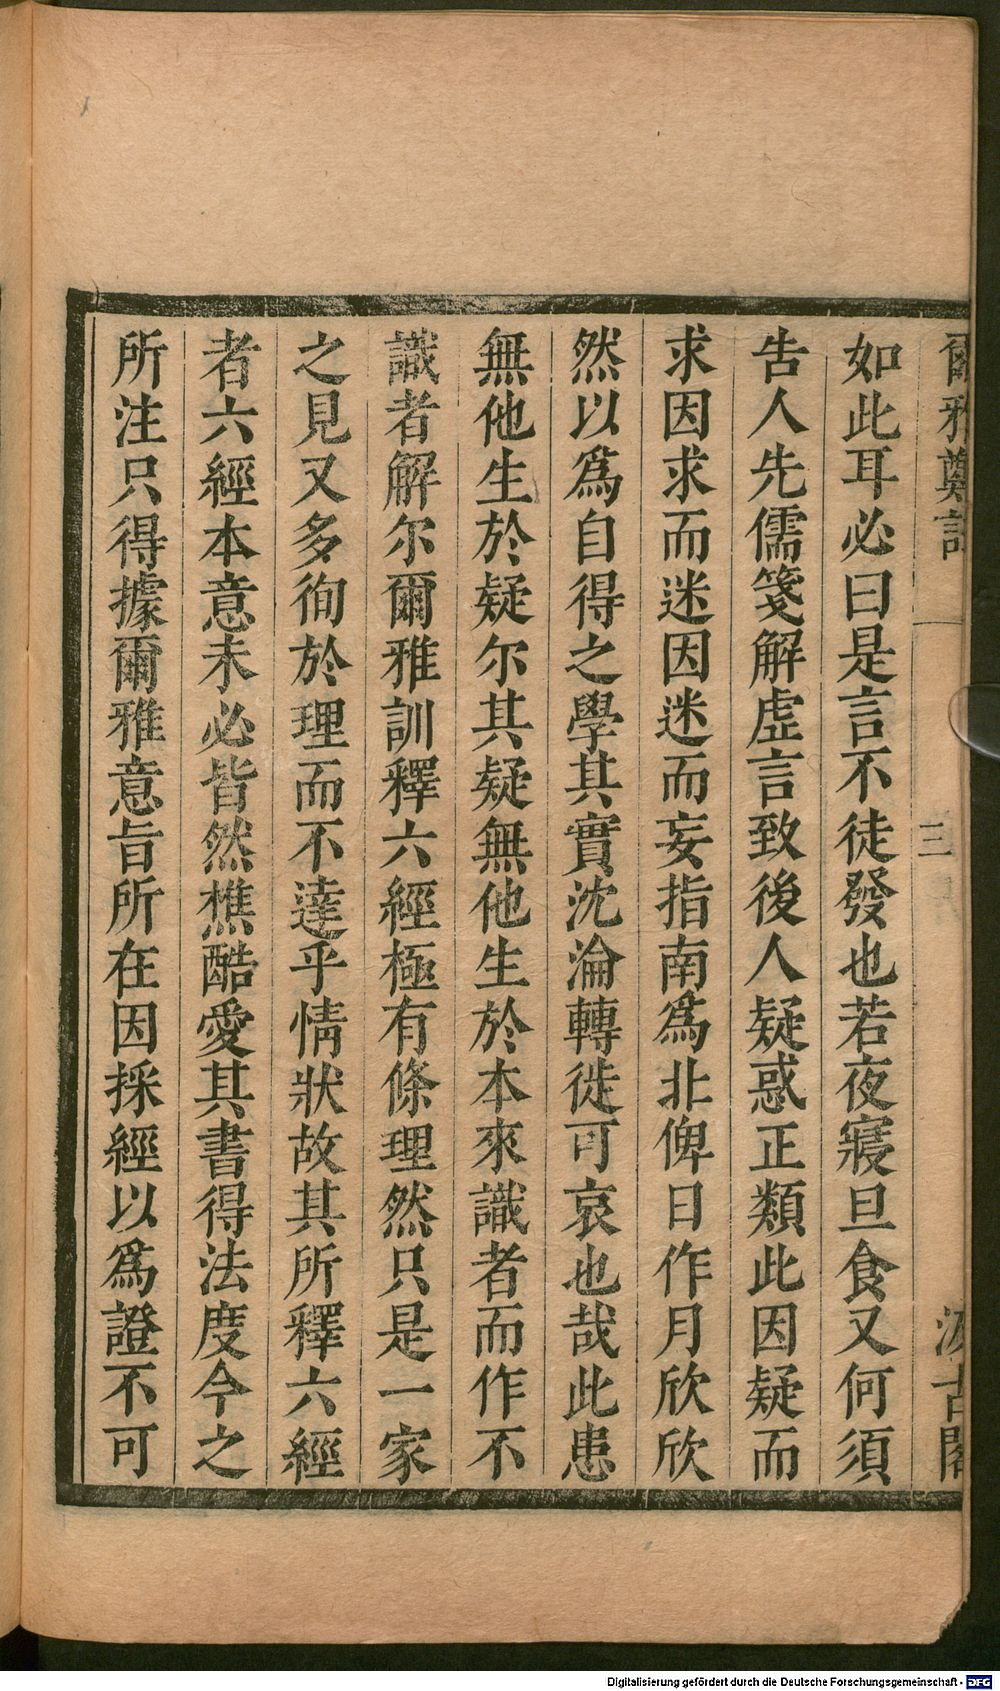 爾雅鄭註 三 汲古閣
如此耳必曰是言不徒發也若夜寢旦食又何須
告人先儒箋解虛言致後人疑惑正類此因疑而
求因求而迷因迷而妄指南爲北俾日作月欣欣
然以爲自得之學其實沈淪轉徙可哀也哉此患
無他生於疑尔其疑無他生於本來識者而作不
識者解尔爾雅訓釋六經極有條理然只是一家
之見又多徇於理而不達乎情狀故其所釋六經
者六經本意未必皆然樵酷愛其書得法度今之
所注只得據爾雅意旨所在因採經以爲證不可
Digitalisierung gefördert durch die Deutsche Forschungsgemeinschaft - DFG